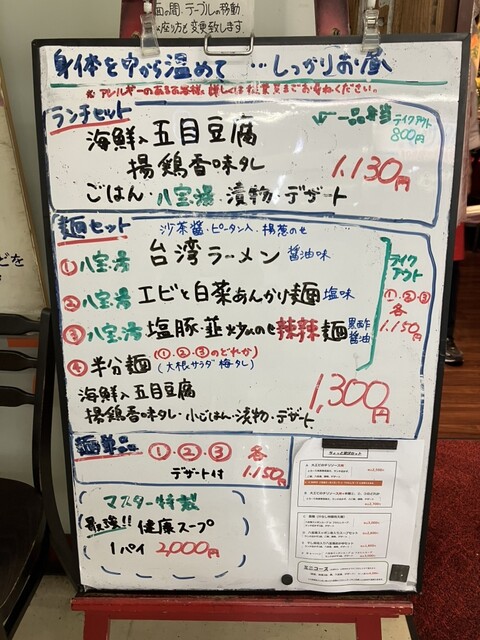 面の間、テーブルの移動、
お座り方も変更致します。
身体を中から温めて…しっかりお昼
※アレルギーのあるお客様、詳しくは従業員までお尋ねください。
ランチセット
一品弁当 テイクアウト
800円
海鮮入五目豆腐
揚鶏香味タレ
1,130円
ごはん・八宝湯・漬物・デザート
麺セット
沙茶醤・ピータン入・揚葱のせ
①八宝湯 台湾ラーメン 醤油味
②八宝湯 エビと白菜あんかけ麺 塩味
③八宝湯 塩豚・韮炒めのせ辣辣麺 黒酢醤油
テイクアウト
①・②・③
各
1,150円
④半分麺 (①・②・③のどれか)
(大根サラダ 梅タレ)
海鮮入五目豆腐
揚鶏香味タレ・小ごはん・漬物・デザート
1,300円
麺単品 ①・②・③ 各
デザート付 1,150円
マスター特製
最強!! 健康スープ
1パイ 2,000円
ミニコース